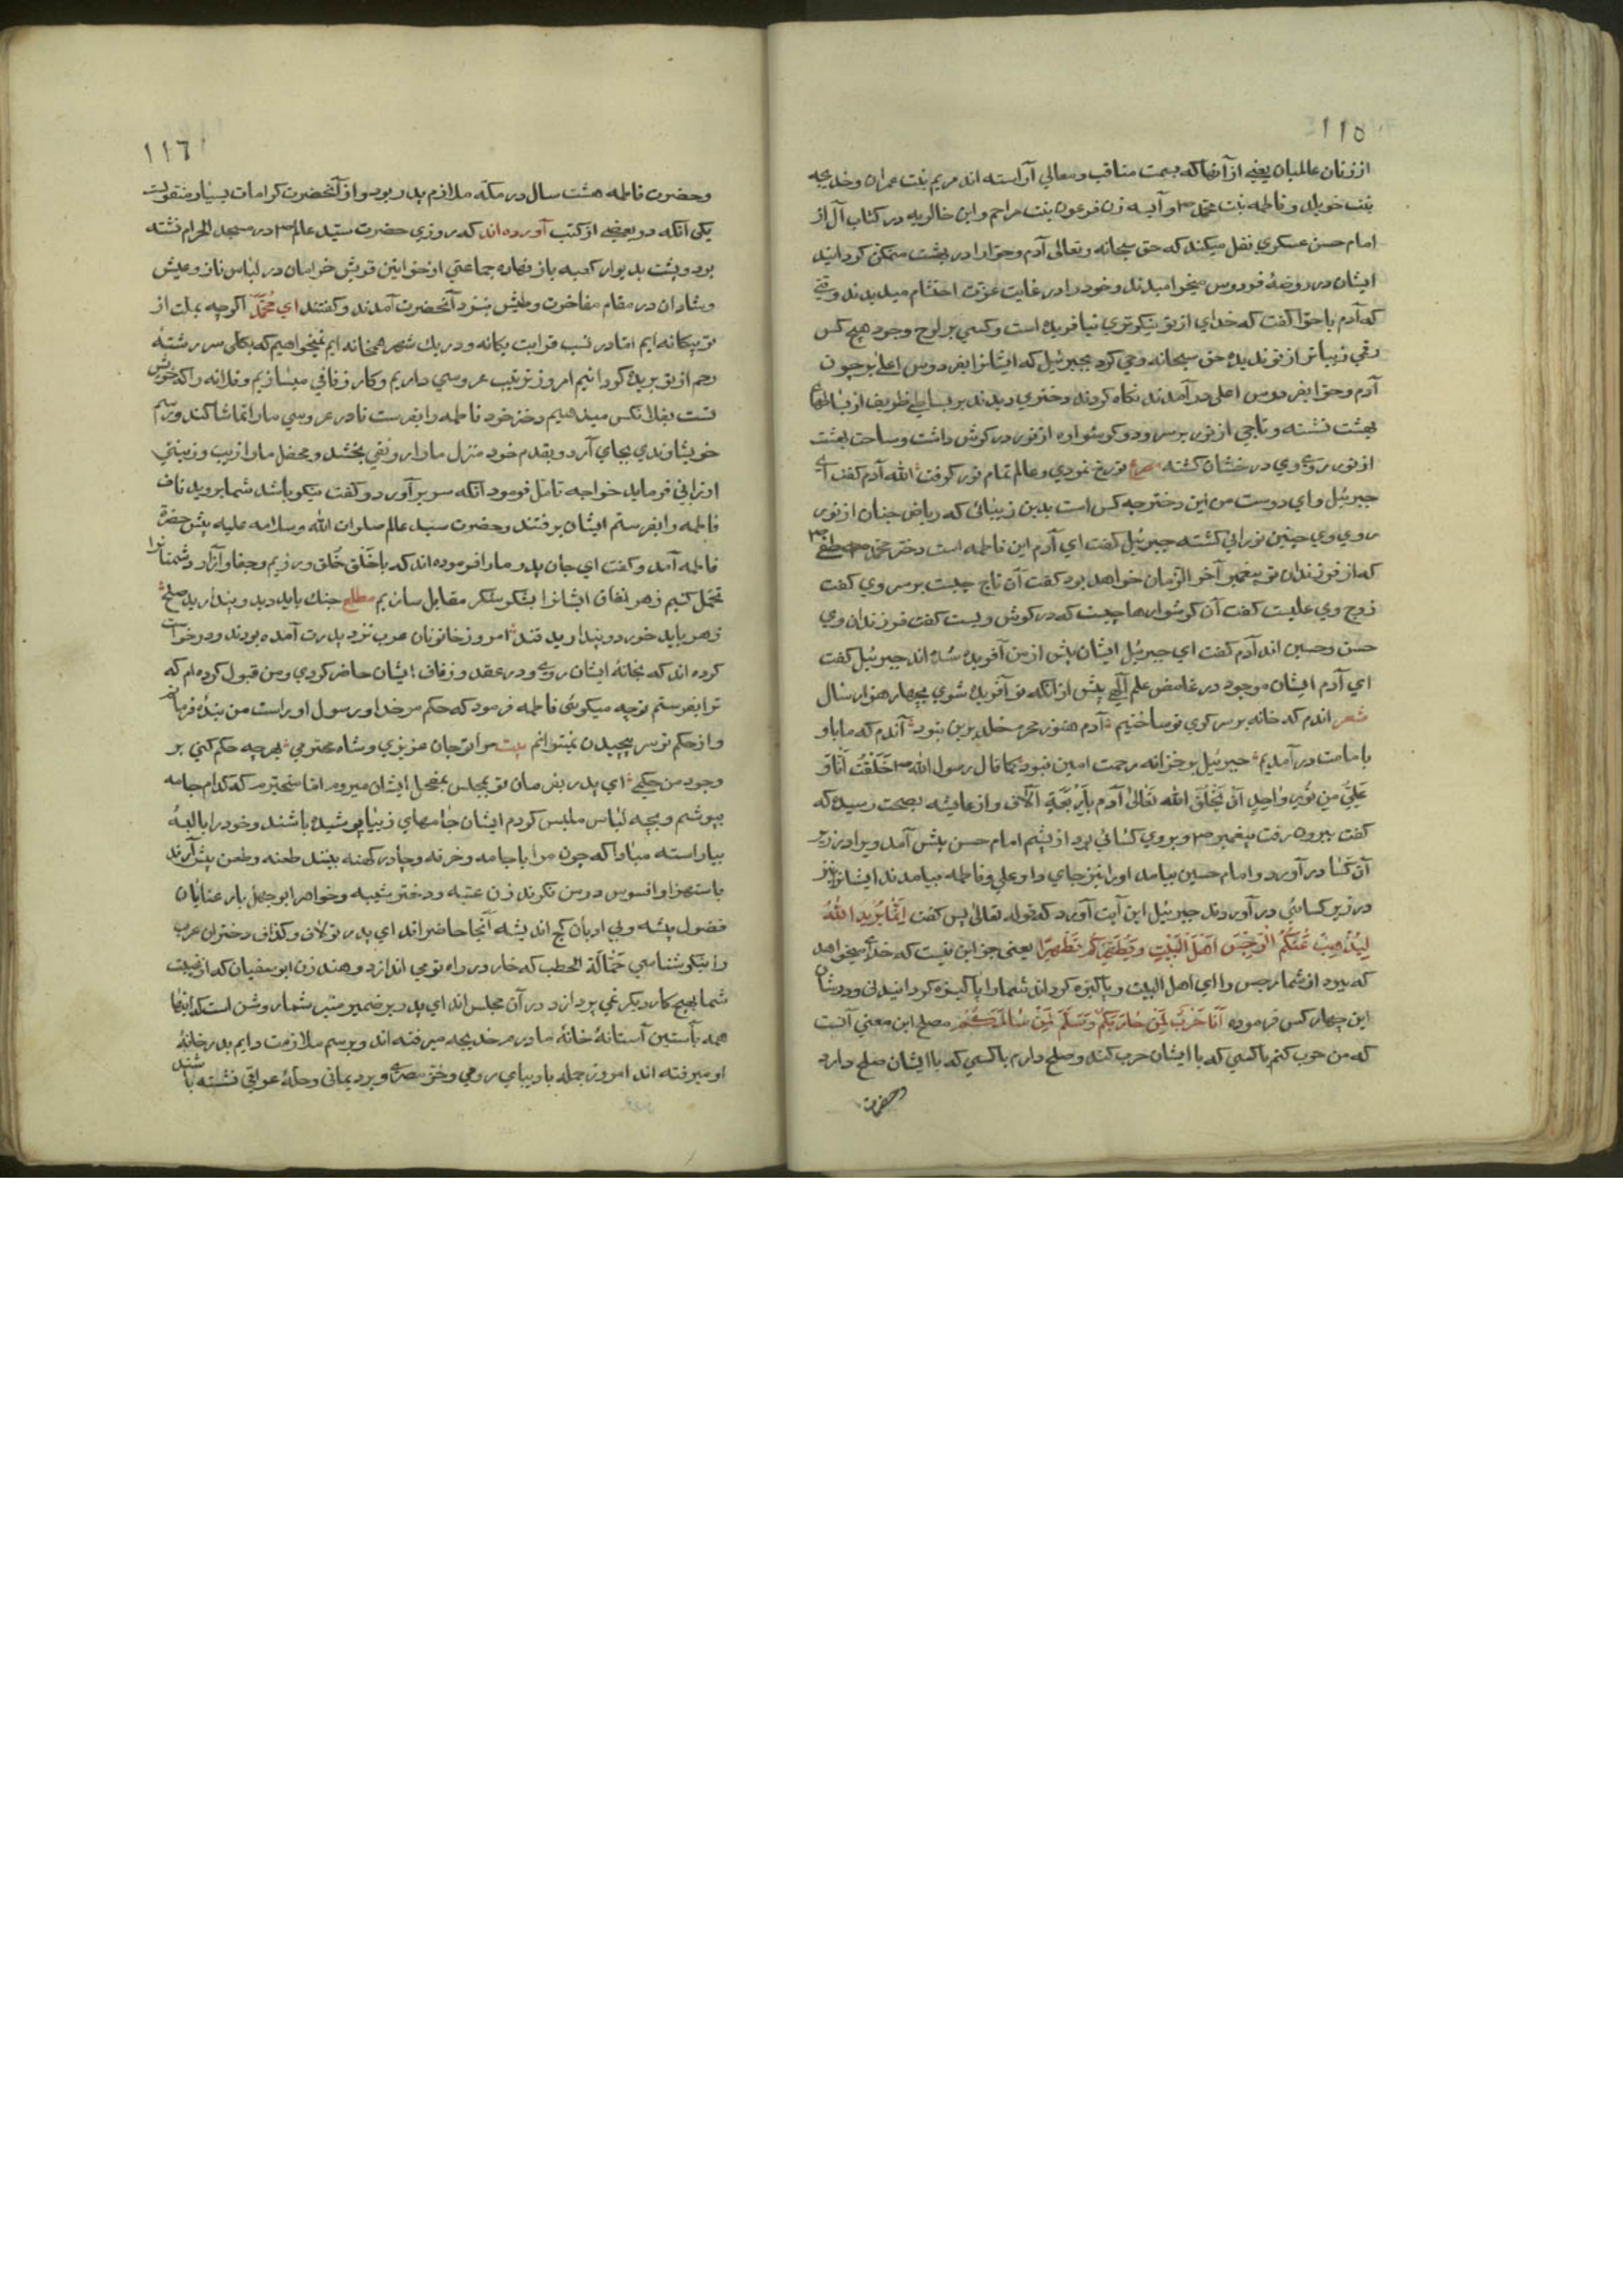 ١١٥
از زنان عالمیان یعنی از آنها که بسمت مناقب ومعالی آراسته اند مریم بنت عمران وخدیجه
بنت خویلد وفاطمه بنت محمد ص وآسیه زن فرعون بنت مزاحم وابن خالویه در کتاب آل از
امام حسن عسکری نقل میکند که حق سبحانه وتعالی آدم وحوا را در بهشت متمکن کردانید
ایشان در روضهٔ فردوس میخرامیدند وخود را در غایت عزت احتشام میدیدند وقتی
که آدم با حوا کفت که خدای از تو نیکوتری نیافریده است وکسی بر لوح وجود هیچ کس
رقمی زیباتر از تو ندیده حق سبحانه وحی کرد بجبرئیل که ایشانرا بفردوس اعلی بر چون
آدم وحوا بفردوس اعلی در آمدند نکاه کردند دختری دیدند بر بساطی ظریف از بساطهای
بهشت نشسته وتاجی از نور بر سر ودو کوشواره از نور در کوش داشت وساحت بهشت
از نور روی وی درخشان کشته مصرع تو رخ نمودی وعالم تمام نور کرفت الله آدم کفت ای
جبرئیل وای دوست من این دختر چه کس است بدین زیبائی که ریاض جنان از نور
روی وی چنین نورانی کشته جبرئیل کفت ای آدم این فاطمه است دختر محمد مصطفی ص
که از فرزندان تو پیغمبر آخر الزمان خواهد بود کفت آن تاج چیست بر سر وی کفت
زوج وی علیست کفت آن کوشوارها چیست که در کوش ویست کفت فرزندان وی
حسن وحسین اند آدم کفت ای جبرئیل ایشان پیش از من آفریده شده اند جبرئیل کفت
ای آدم ایشان موجود در غامض علم آلهی پیش از انکه تو آفریده شوی بچهار هزار سال
شعر اندم که خانه بر سر کوی تو ساختیم آدم هنوز محرم خلد برین نبود آندم که ما باو
با مامت در آمدیم جبرئیل بر خزانه رحمت امین نبود کما قال رسول الله ص خلقت انا و
علی من نور واحد ان یخلق الله تعالی آدم باربعة آلاف واز عایشه بصحت رسیده که
کفت بیرون رفت پیغمبر ص وبر وی کسائی بود از پشم امام حسن پیش آمد ویرا در زیر
آن کسا در آورد وامام حسین بیامد اورا نیز جای داد وعلی وفاطمه بیامدند ایشانرا نیز
در زیر کسا در آوردند جبرئیل این آیت آورد که قوله تعالی پس کفت انما یرید الله
لیذهب عنکم الرجس اهل البیت ویطهرکم تطهیرا یعنی جز این نیست که خدای میخواهد
که ببرد از شما رجس را ای اهل البیت وپاکیزه کرداند شما را پاکیزه کردانیدنی ودر شان
این چهار کس فرموده انا حرب لمن حاربکم وسلم لمن سالمکم مصلح این معنی آنست
که من حرب کنم با کسی که با ایشان حرب کند وصلح دارم با کسی که با ایشان صلح دارد
وحضرت
١١٦
وحضرت فاطمه هشت سال در مکّه ملازم پدر بود واز آنحضرت کرامات بسیار منقولست
یکی آنکه در بعضی از کتب آورده اند که روزی حضرت سید عالم ص در مسجد الحرام نشسته
بود وپشت بدیوار کعبه باز نهاده جماعتی از خواتین قریش خرامان در لباس ناز وعیش
وشادان در مقام مفاخرت وطیش بنزد آنحضرت آمدند وکفتند ای محمّد اکرچه بملت از
تو بیکانه ایم اما در نسب قرابت یکانه ودر یك شهر همخانه ایم نمیخواهیم که بکلی سر رشتهٔ
رحم از تو بریده کردانیم امروز ترتیب عروسی داریم وکار زفافی میسازیم وفلانه را که خویش
تست بفلان کس میدهیم دختر خود فاطمه را بفرست تا در عروسی ما را تماشا کند ورسم
خویشاوندی بجای آرد وبقدم خود منزل ما را رونقی بخشد ومحفل ما را زیب وزینتی
ارزانی فرماید خواجه تامّل فرمود آنکه سر بر آورد وکفت نیکو باشد شما بروید تا من
فاطمه را بفرستم ایشان برفتند وحضرت سید عالم صلوات الله وسلامه علیه پیش حضرت
فاطمه آمد وکفت ای جان پدر ما را فرموده اند که با خَلق خُلق ورزیم وجفا وآزار دشمنانرا
تحمّل کنیم زهر نفاق ایشانرا بشکر شکر مقابل سازیم مطلع جنك باید دید وپندارید صلح
زهر باید خورد وپندارید قند امروز خاتونان عرب نزد پدرت آمده بودند ودرخواست
کرده اند که بخانهٔ ایشان روی ودر عقد وزفاف ایشان حاضر کردی ومن قبول کرده ام که
ترا بفرستم تو چه میکوئی فاطمه فرمود که حکم مر خدا ورسول او راست من بندهٔ فرمانم
واز حکم تو سر پیچیدن نمیتوانم بیت مرا تو جان عزیزی وشاه محترمی بهرچه حکم کنی بر
وجود من حکمی ای پدر بفرمان تو بمجلس بمحفل ایشان میروم اما متحیرم که کدام جامه
بپوشم وبچه لباس ملبس کردم ایشان جامهای زیبا پوشیده باشند وخود را با البسهٔ
بیاراسته مبادا که چون مرا با جامه وخرقه وچادر کهنه بینند طعنه وطعن پیش آرند
باستهزا وافسوس در من نکرند زن عتبه ودختر شیبه وخواهر ابوجهل با رعنایان
فضول پیشه وبی ادبان کج اندیشه آنجا حاضر اند ای پدر تو لاف وکذاف دختران عرب
را نیکو شناسی حَمّالَة الحطب که خار در راه تو می اندازد وهند زن ابو سفیان که از غیبت
شما بهیچ کار دیکر نمی پردازد در آن مجلس اند ای پدر بر ضمیر منیر شما روشن است که اینها
همه بآستین آستانهٔ خانهٔ مادرم خدیجه میرفته اند وبرسم ملازمت دایم بدر خانهٔ
او میرفته اند امروز جمله با دیبای رومی وخز مصری وبرد یمانی وحلهٔ عراقی نشسته باشند